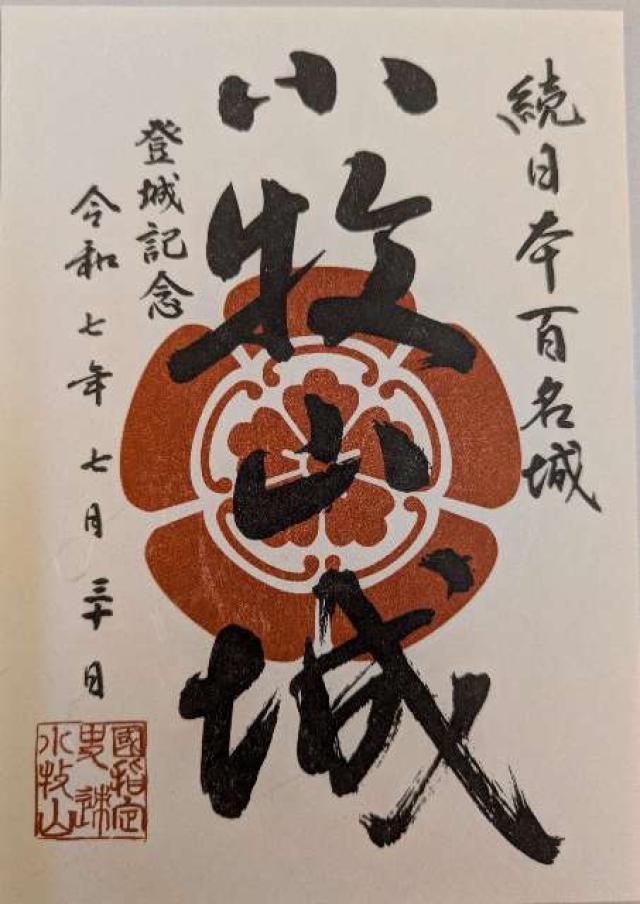 続日本百名城
小牧山城
登城記念
令和七年七月三十日
國指定
史跡
小牧山